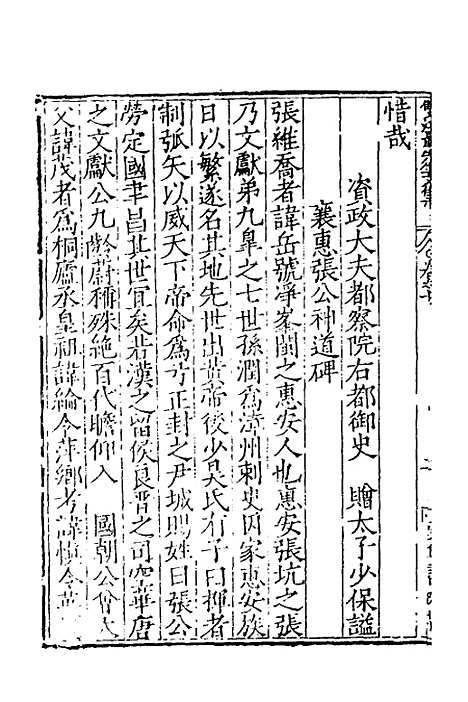 惜哉
資政大夫都察院右都御史 贈太子少保謚
襄惠張公神道碑
張維喬者諱岳號淨峯閩之惠安人也惠安張坑之張
乃文獻弟九皐之七世孫潤爲漳州刺史因家惠安族
日以繁遂名其地先世出黃帝後少昊氏有子曰揮者
制弧矢以威天下帝命爲弓正封之尹城賜姓曰張公
勞定國丰昌其世宜矣若漢之留侯良晋之司空華唐
之文獻公九齡蔚稱殊絶百代瞻仰入 國朝公曾大
父諱茂者爲桐廬丞皇初諱綸令萍鄉考諱慎令